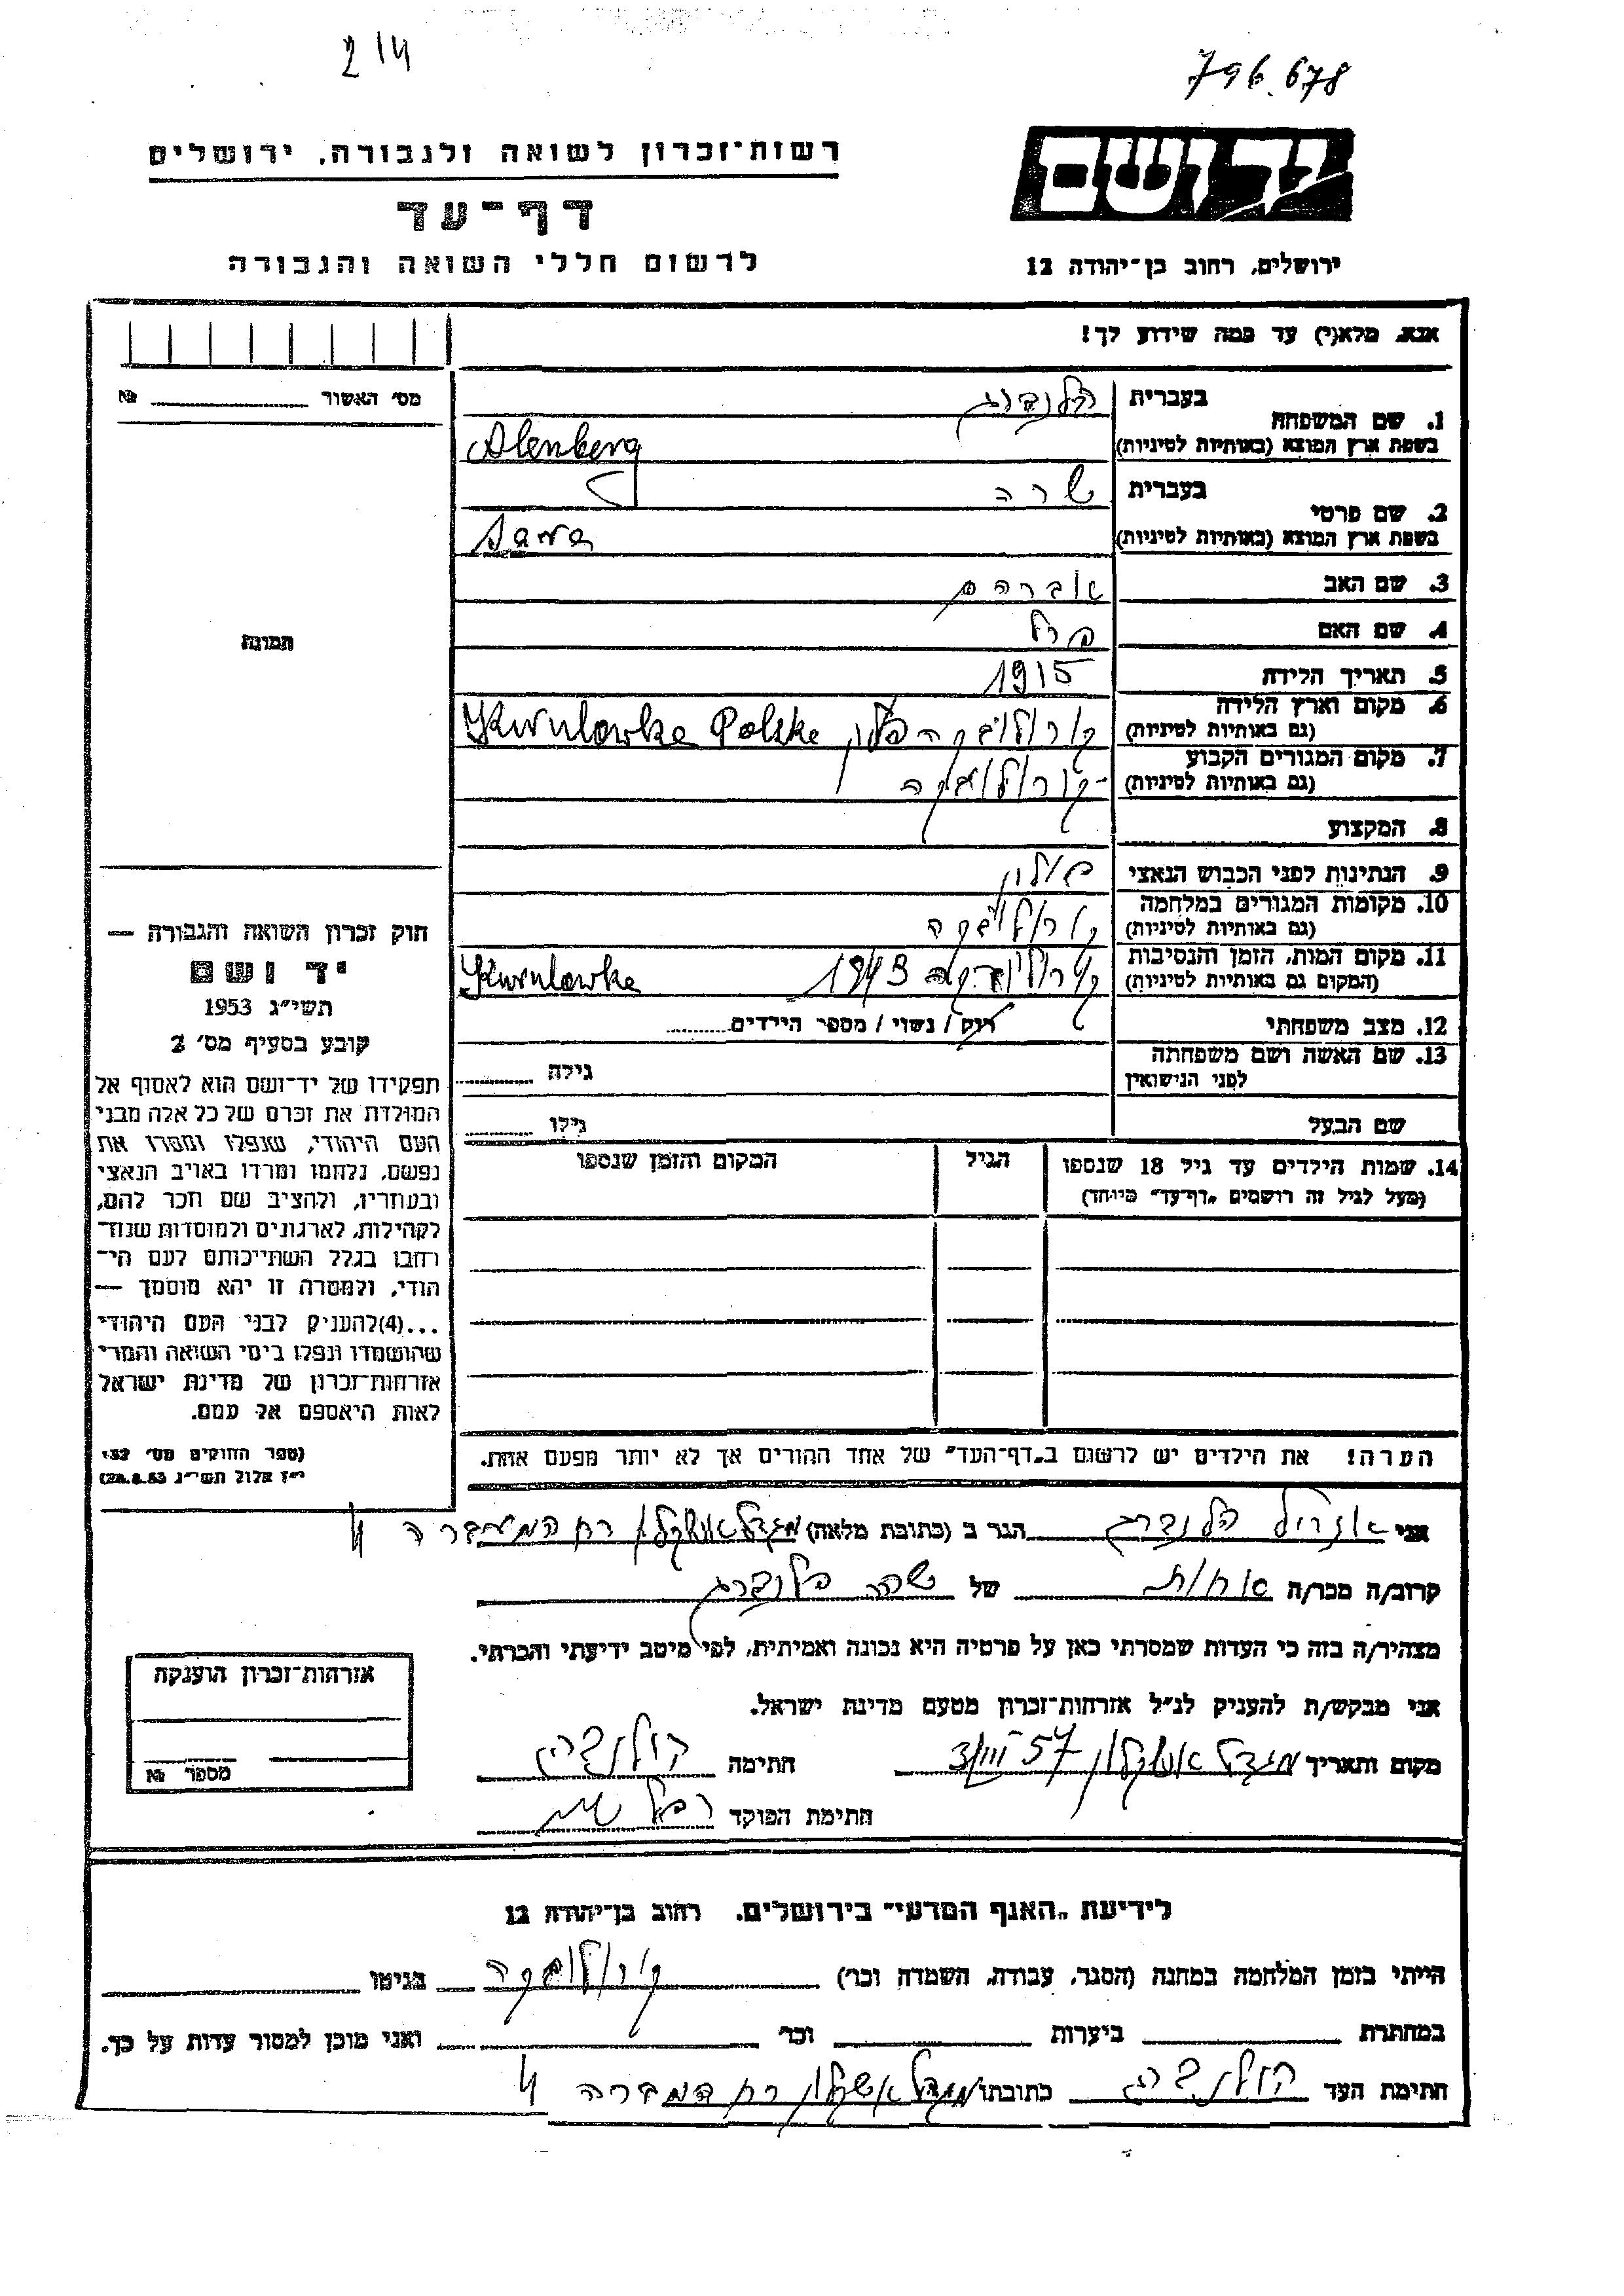 2 14
796.678
יד ושם
רשות־זכרון לשואה ולגבורה, ירושלים
דף־עד
לרשום חללי השואה והגבורה
ירושלים, רחוב בן־יהודה 12
אנא, מלא(י) עד כמה שידוע לך!
מס' האשור № 
1. שם המשפחה
בעברית
בשפת ארץ המוצא (באותיות לטיניות)
Alenberg
2. שם פרטי
בעברית שרה
בשפת ארץ המוצא (באותיות לטיניות) Sara
3. שם האב אברהם
4. שם האם פרל
5. תאריך הלידה 1915
6. מקום וארץ הלידה
(גם באותיות לטיניות) קורולובקה פולין Kurulowka Polska
7. מקום המגורים הקבוע
(גם באותיות לטיניות) קורולובקה
8. המקצוע
9. הנתינות לפני הכבוש הנאצי פולין
10. מקומות המגורים במלחמה
(גם באותיות לטיניות) קורולובקה
11. מקום המות, הזמן והנסיבות
(המקום גם באותיות לטיניות) קורולובקה 1943 Kurulowka
12. מצב משפחתי רוק / נשוי / מספר הילדים
13. שם האשה ושם משפחתה
לפני הנישואין
גילה
שם הבעל
גילו
14. שמות הילדים עד גיל 18 שנספו
(מעל לגיל זה רושמים „דף־עד" מיוחד)
הגיל
המקום והזמן שנספו
הערה! את הילדים יש לרשום ב„דף־העד" של אחד ההורים אך לא יותר מפעם אחת.
תמונה
חוק זכרון השואה והגבורה —
יד ושם
תשי"ג 1953
קובע בסעיף מס' 2
תפקידו של יד־ושם הוא לאסוף אל
המולדת את זכרם של כל אלה מבני
העם היהודי, שנפלו ומסרו את
נפשם, נלחמו ומרדו באויב הנאצי
ובעוזריו, ולהציב שם וזכר להם,
לקהילות, לארגונים ולמוסדות שנח־
רבו בגלל השתייכותם לעם הי־
הודי, ולמטרה זו יהא מוסמך —
...(4)להעניק לבני העם היהודי
שהושמדו ונפלו בימי השואה והמרי
אזרחות־זכרון של מדינת ישראל
לאות היאספם אל עמם.
(ספר החוקים מס' 132,
י"ז אלול תשי"ג 28.8.53)
אני הגר ב (כתובת מלאה) מגדל אשקלון רח המעברה 4
קרוב/ה מכר/ה אחות של שרה
מצהיר/ה בזה כי העדות שמסרתי כאן על פרטיה היא נכונה ואמיתית, לפי מיטב ידיעתי והכרתי.
אני מבקש/ת להעניק לנ"ל אזרחות־זכרון מטעם מדינת ישראל.
מקום ותאריך מגדל אשקלון 3/III 57 חתימה
חתימת הפוקד
אזרחות־זכרון הוענקה
מספר №
לידיעת „האגף המדעי" בירושלים, רחוב בן־יהודה 12
הייתי בזמן המלחמה במחנה (הסגר, עבודה, השמדה וכו') קורולובקה בגיטו
במחתרת ביערות וכו' ואני מוכן למסור עדות על כך.
חתימת העד כתובתו מגדל אשקלון רח המעברה 4